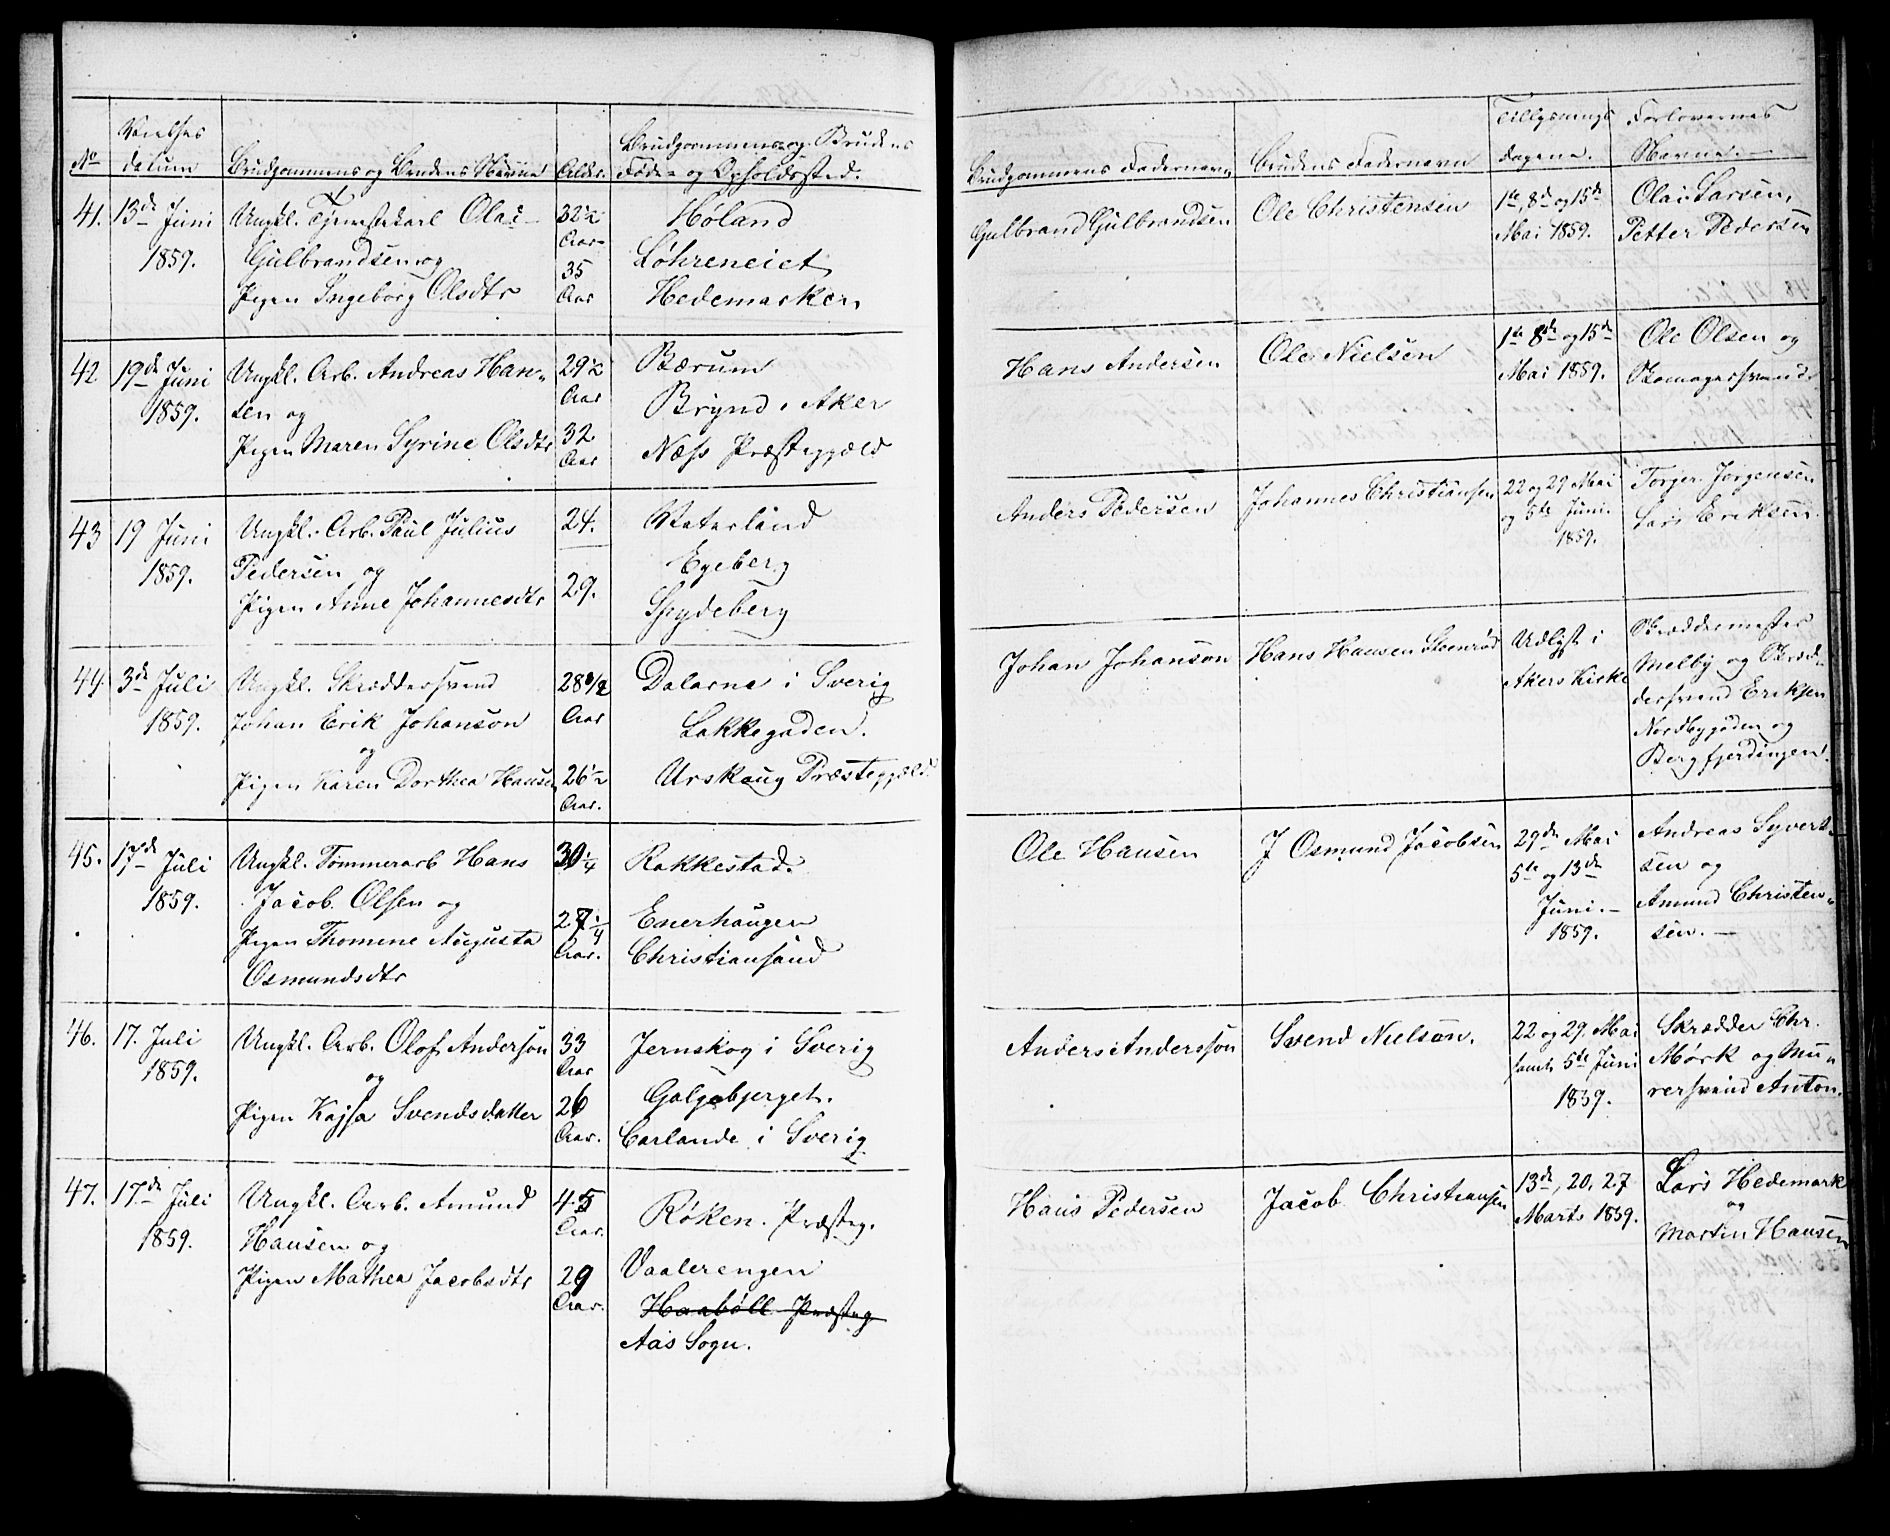 No
Vielses
datum
Brudgommens og Brudens Navne
Alder.
Brudgommens og Brudens
Føde- og Opholdssted.
Brudgommens Fadernavn
Brudens Fadernavn
Tillysnings
dagene.
Forlovernes
Navne.
41.
13de Juni
1859.
Ungkl. Tjenestekarl Olai
Gulbrandsen og
Pigen Ingeborg Olsdtr
32½
Aar
35
Aar
Høland
Løhreneiet
Hedemarken
Gulbrand Gulbrandsen
Ole Christensen
1te, 8de og 15de
Mai 1859.
Olai Larsen,
Petter Pedersen
42
19de Juni
1859.
Ungkl. Arb. Andreas Han-
sen og
Pigen Maren Syrine Olsdtr
29½
Aar
32
Aar
Bærum
Brynd. Aker
Næss Præstegjeld
Hans Andersen
Ole Nielsen
1te 8de og 15de
Mai 1859.
Ole Olsen og
43
19 Juni
1859.
Ungkl. Arb. Paul Julius
Pedersen og
Pigen Anne Johannesdtr
24.
29.
Vaterland
Egeberg
Spydeberg
Anders Pedersen
Johannes Christiansen
22 og 29 Mai
og 5te Juni.
1859.
Torger Jørgensen
Lars Eriksen
44
3de Juli
1859.
Ungkl. Skræddersvend
Johan Erik Johanson
og
Pigen Karen Dorthea Hansen
28
Aar
26½
Aar.
Dalarna i Sverig
Lakkegaden.
Urskoug Præstegjeld
Johan Johanson
Hans Hansen Steenrød
Udlyst i
Akers Kirke
Skræddermester
Melby og Skræd-
dersvend Eriksen
Nordbygaden og
Bergfjerdingen.
45.
17de Juli
1859.
Ungkl. Tømmerarb Hans
Jacob Olsen og
Pigen Thomine Augusta
Osmundsdtr
30¼
27¼
Aar.
Rakkestad.
Enerhaugen
Christiansand
Ole Hansen
J Osmund Jacobsen
29de Mai
5te og 13de
Juni.
1859.
Andreas Syvert-
sen og
Amund Christen-
sen.
46.
17. Juli
1859.
Ungkl. Arb. Olof Anderson
og
Pigen Kajsa Svendsdatter
33
Aar
26
Aar.
Jernskog i Sverig
Galgebjerget.
Carlande i Sverig
Anders Andersson
Svend Nielson.
22 og 29 Mai
samt 5te Juni
1859.
Skrædder Chr.
Mørk og Mu-
rersvend Anton.
47.
17.de Juli
1859.
Ungkl. Arb. Amund
Hansen og
Pigen Mathea Jacobsdtr
45
Aar.
29
Aar.
Røken. Præsteg.
Vaalerengen
Haabøll Præsteg
Aas Sogn.
Hans Pedersen
Jacob Christiansen
13de, 20, 27
Marts 1859.
Lars Hedemark
og
Martin Hansen